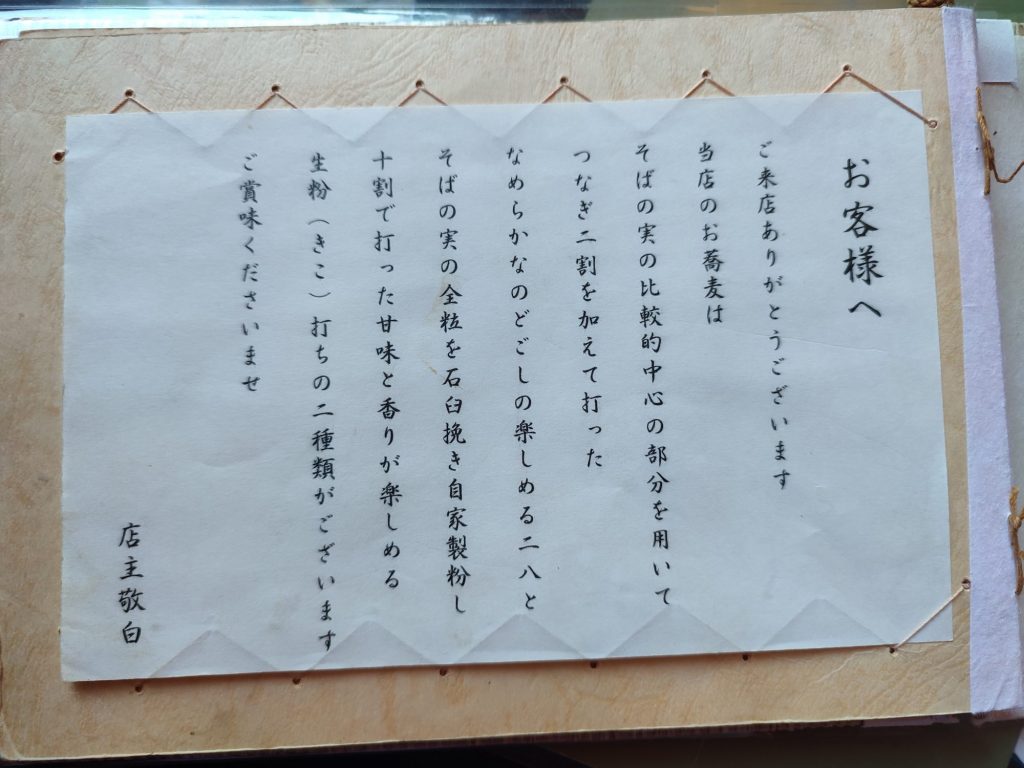 お客様へ
ご来店ありがとうございます
当店のお蕎麦は
そばの実の比較的中心の部分を用いて
つなぎ二割を加えて打った
なめらかなのどごしの楽しめる二八と
そばの実の全粒を石臼挽き自家製粉し
十割で打った甘味と香りが楽しめる
生粉（きこ）打ちの二種類がございます
ご賞味くださいませ
店主敬白